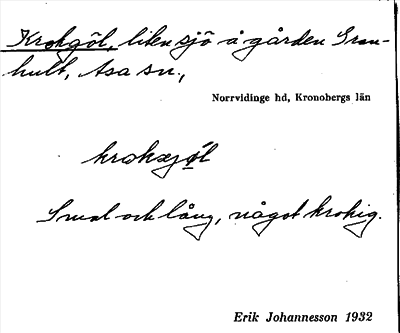 Krokgöl, liten sjö å gården Gran-
hult, Asa sn.,
Norrvidinge hd, Kronobergs län
krokgöl
Smal och lång, något krokig.
Erik Johannesson 1932